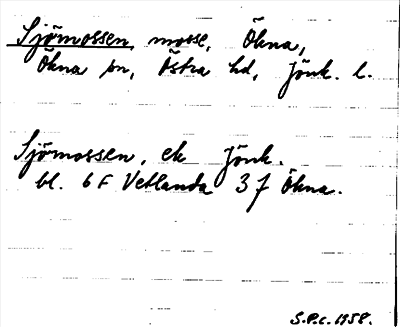 Sjömossen, mosse, Ökna,
Ökna sn, Östra hd, Jönk. l.
Sjömossen, ek Jönk.
bl. 6 F Vetlanda 3 f Ökna.
S.P.C. 1958.